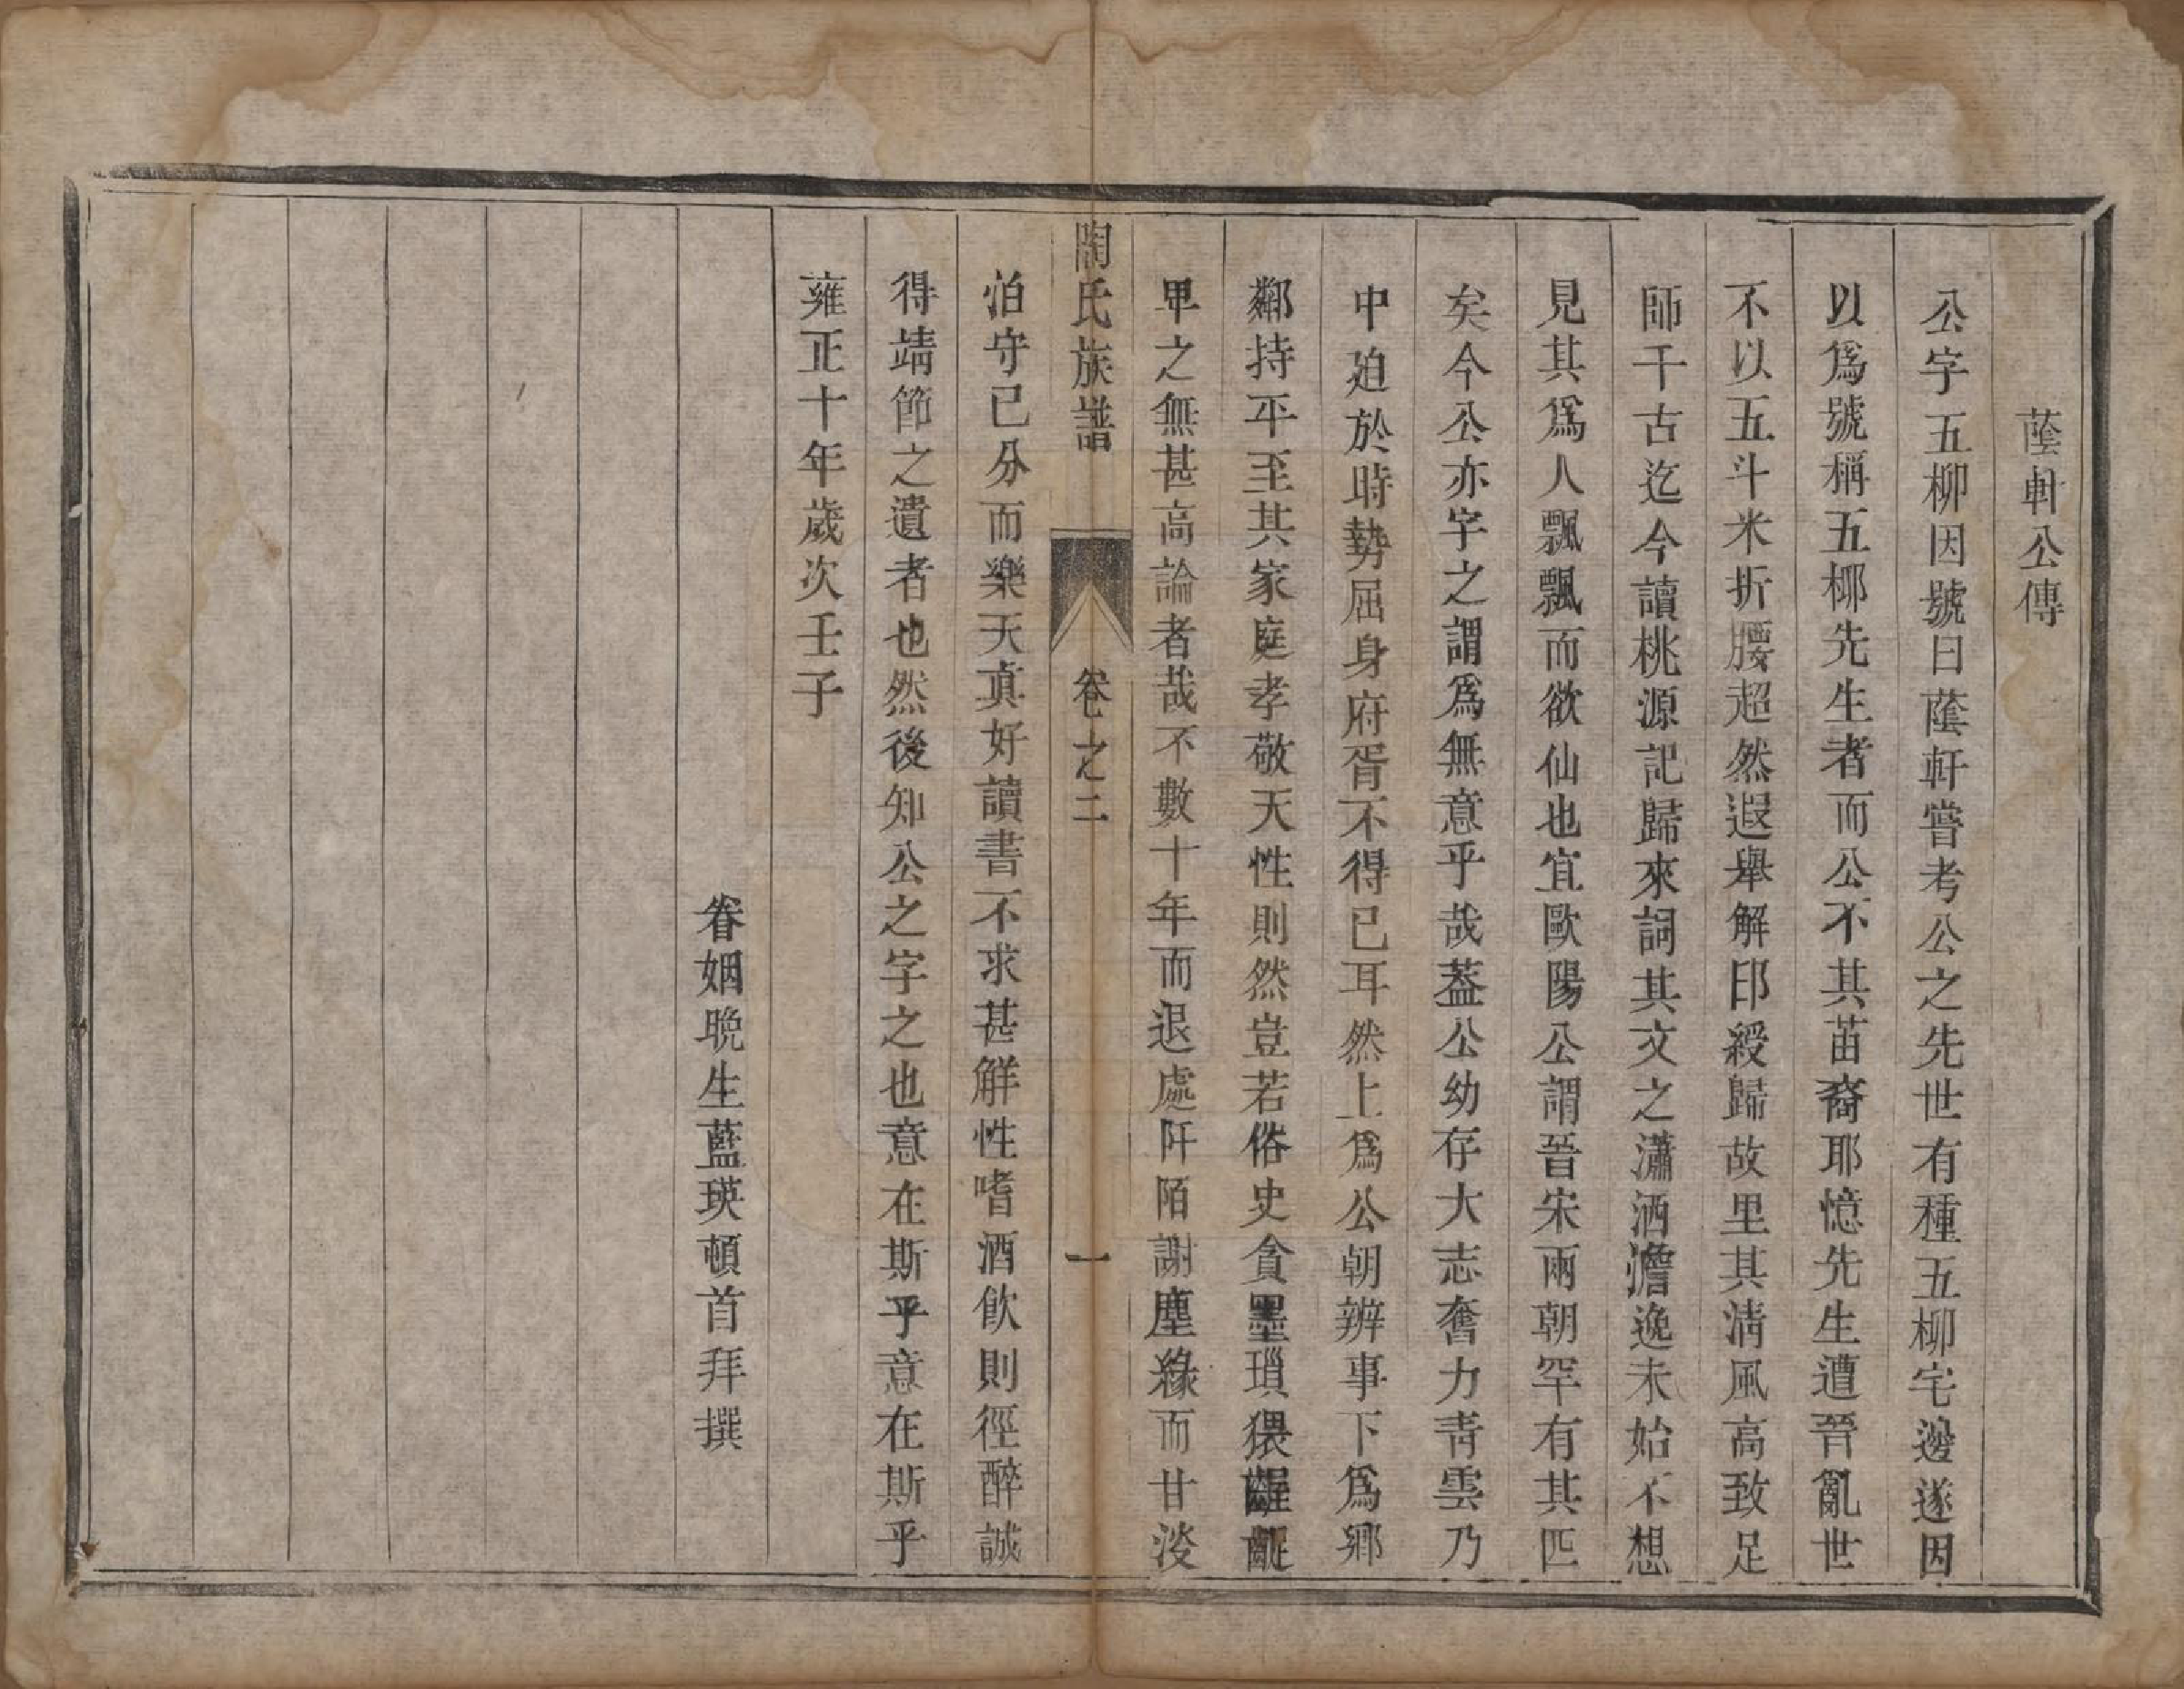 蔭軒公傳
公字五柳因號曰蔭軒嘗考公之先世有種五柳宅邊遂因
以爲號稱五桺先生者而公不其苗裔耶憶先生遭晉亂世
不以五斗米折腰超然遐舉解印綬歸故里其淸風高致足
師千古迄今讀桃源記歸來詞其文之瀟洒澹逸未始不想
見其爲人飄飄而欲仙也宜歐陽公謂晉宋兩朝罕有其匹
矣今公亦字之謂爲無意乎哉葢公幼存大志奮力靑雲乃
中廹於時勢屈身府胥不得已耳然上爲公朝辨事下爲鄉
鄰持平至其家庭孝敬天性則然豈若俗史貪墨瑣猥齷齪
卑之無甚高論者哉不數十年而退處阡陌謝塵緣而甘淡
陶氏族譜 卷之二 一
泊守已分而樂天眞好讀書不求甚解性嗜酒飮則徑醉誠
得靖節之遺者也然後知公之字之也意在斯乎意在斯乎
雍正十年歲次壬子
眷姻晚生藍瑛頓首拜撰